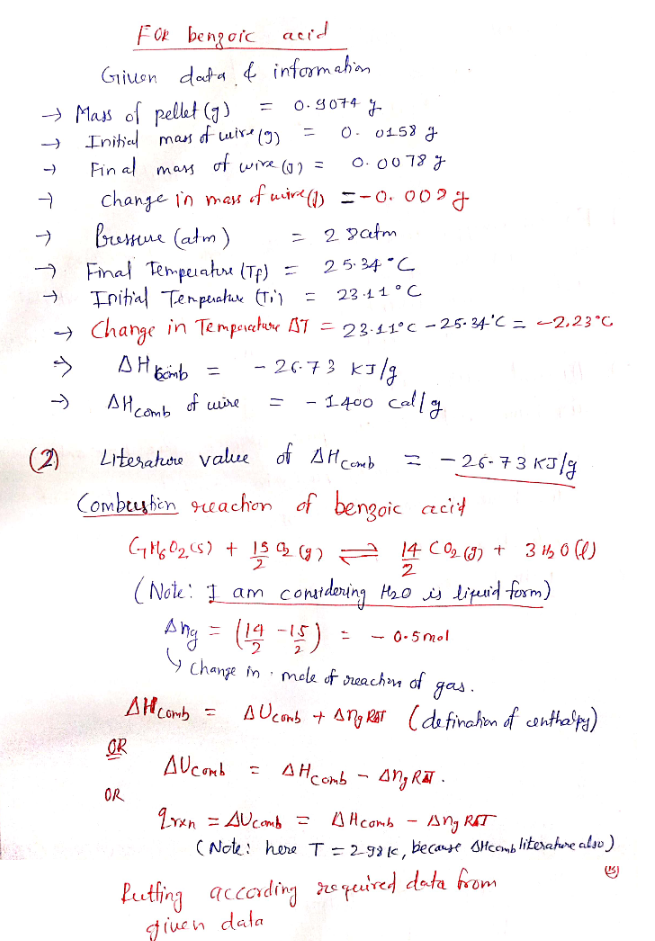 For benzoic acid
Given data & information
→ Mass of pellet (g) = 0.9074 g
→ Initial mass of wire (g) = 0.0158 g
→ Final mass of wire (g) = 0.0078 g
→ Change in mass of wire (g) = -0.008 g
→ Pressure (atm) = 28 atm
→ Final Temperature (Tf) = 25.34 °C
→ Initial Temperature (Ti) = 23.11 °C
→ Change in Temperature ΔT = 23.11°C - 25.34°C = -2.23°C
→ ΔH comb = - 26.73 KJ/g
→ ΔHcomb of wire = - 1400 cal/g
(2) Literature value of ΔHcomb = - 26.73 KJ/g
Combustion reaction of benzoic acid
C7H6O2(s) + 15/2 O2(g) ⇌ 14/2 CO2(g) + 3H2O(l)
(Note: I am considering H2O is liquid form)
Δng = (14/2 - 15/2) = - 0.5 mol
↳ Change in mole of reaction of gas.
ΔHcomb = ΔUcomb + Δng RT (defination of enthalpy)
OR
ΔUcomb = ΔHcomb - Δng RT.
OR
qrxn = ΔUcomb = ΔHcomb - Δng RT
(Note: here T = 298 K, because ΔHcomb literature also)
Putting according required data from
given data